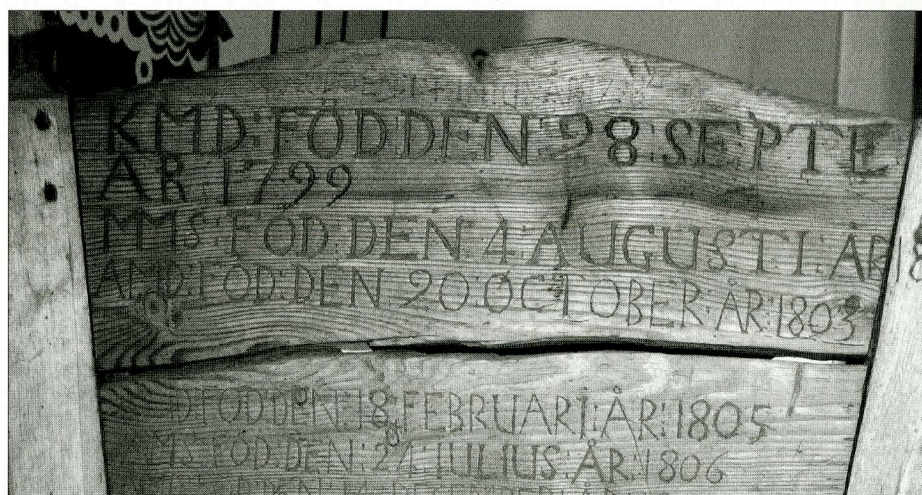 KMD:FÖD:DEN:28:SEPTE
ÅR:1799
MMS:FÖD:DEN:4:AUGUSTI:ÅR
AMD:FÖD:DEN 20:OCTOBER:ÅR:1803
D:FÖD:DEN:18:FEBRUARI:ÅR:1805
MS:FÖD:DEN:24:IULIUS:ÅR:1806